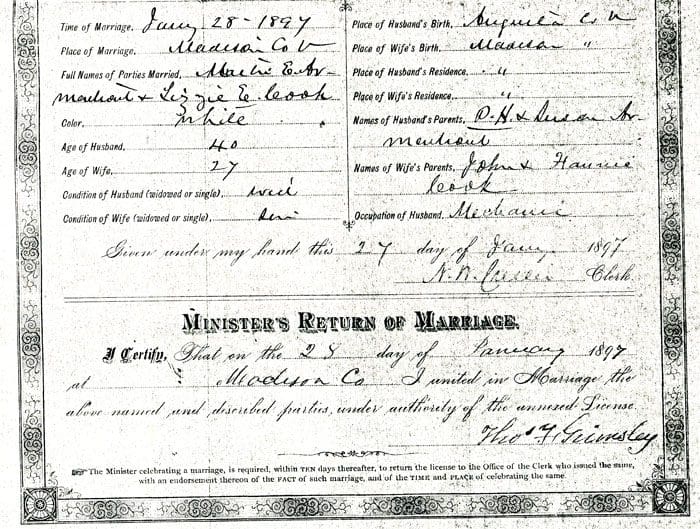 Time of Marriage, Jany 28 - 1897
Place of Marriage, Madison Co V
Full Names of Parties Married, Martin E. Ar-
mentrout & Lizzie E. Cook
Color, White
Age of Husband, 40
Age of Wife, 27
Condition of Husband (widowed or single), wid
Condition of Wife (widowed or single), sin
Place of Husband's Birth, Augusta Co V
Place of Wife's Birth, Madison "
Place of Husband's Residence, "
Place of Wife's Residence, "
Names of Husband's Parents, P. H. & Susan Ar
mentrout
Names of Wife's Parents, John & Fannie
Cook
Occupation of Husband, Mechanic
Given under my hand this 27 day of Jany 1897
N. W. Clerk.
MINISTER'S RETURN OF MARRIAGE.
I Certify, That on the 28 day of January 1897
at Madison Co I united in Marriage the
above named and described parties, under authority of the annexed License.
Thos F. Grimsley
The Minister celebrating a marriage, is required, within TEN days thereafter, to return the license to the Office of the Clerk who issued the same,
with an endorsement thereof of the FACT of such marriage, and of the TIME and PLACE of celebrating the same.